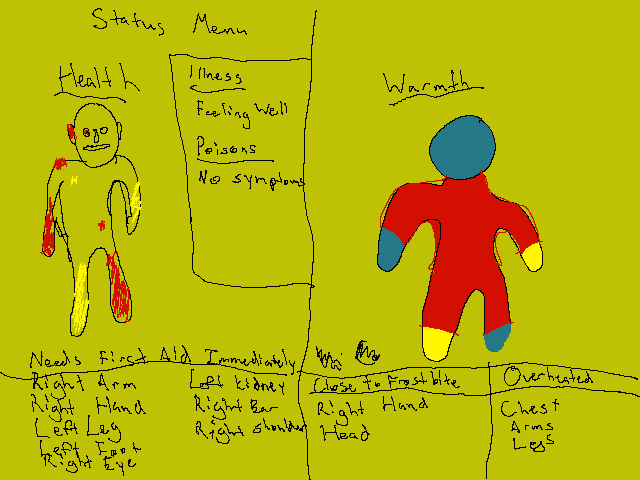 Status Menu
Health
Illness
Feeling Well
Poisons
No symptoms
Warmth
Needs First Aid Immediately
Right Arm
Right Hand
Left Leg
Left Foot
Right Eye
Left Kidney
Right Ear
Right shoulder
Close to Frostbite
Right Hand
Head
Overheated
Chest
Arms
Legs